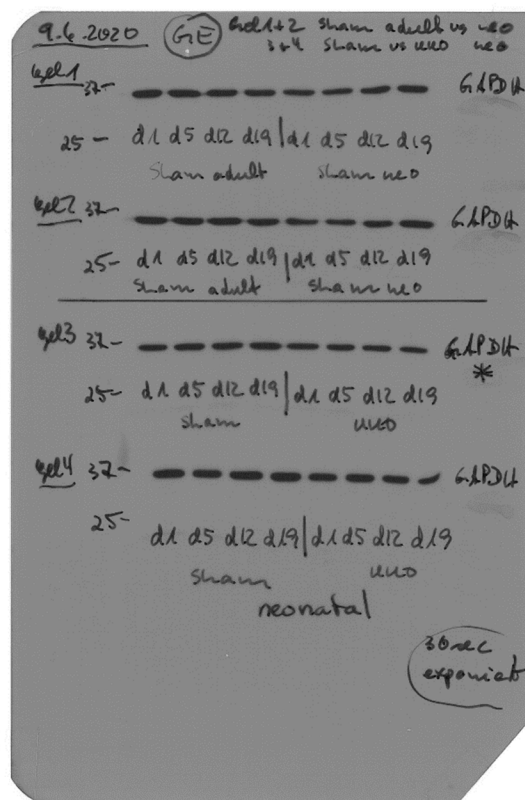 9.6.2020 GE Gel 1+2 sham adult vs neo
3+4 sham vs UUO neo
Gel 1 37- GAPDH
25 - d1 d5 d12 d19 | d1 d5 d12 d19
sham adult sham neo
Gel 2 37- GAPDH
25- d1 d5 d12 d19 | d1 d5 d12 d19
sham adult sham neo
Gel 3 37- GAPDH
*
25- d1 d5 d12 d19 | d1 d5 d12 d19
sham UUO
Gel 4 37- GAPDH
25- d1 d5 d12 d19 | d1 d5 d12 d19
sham UUO
neonatal
30sec
exponiert